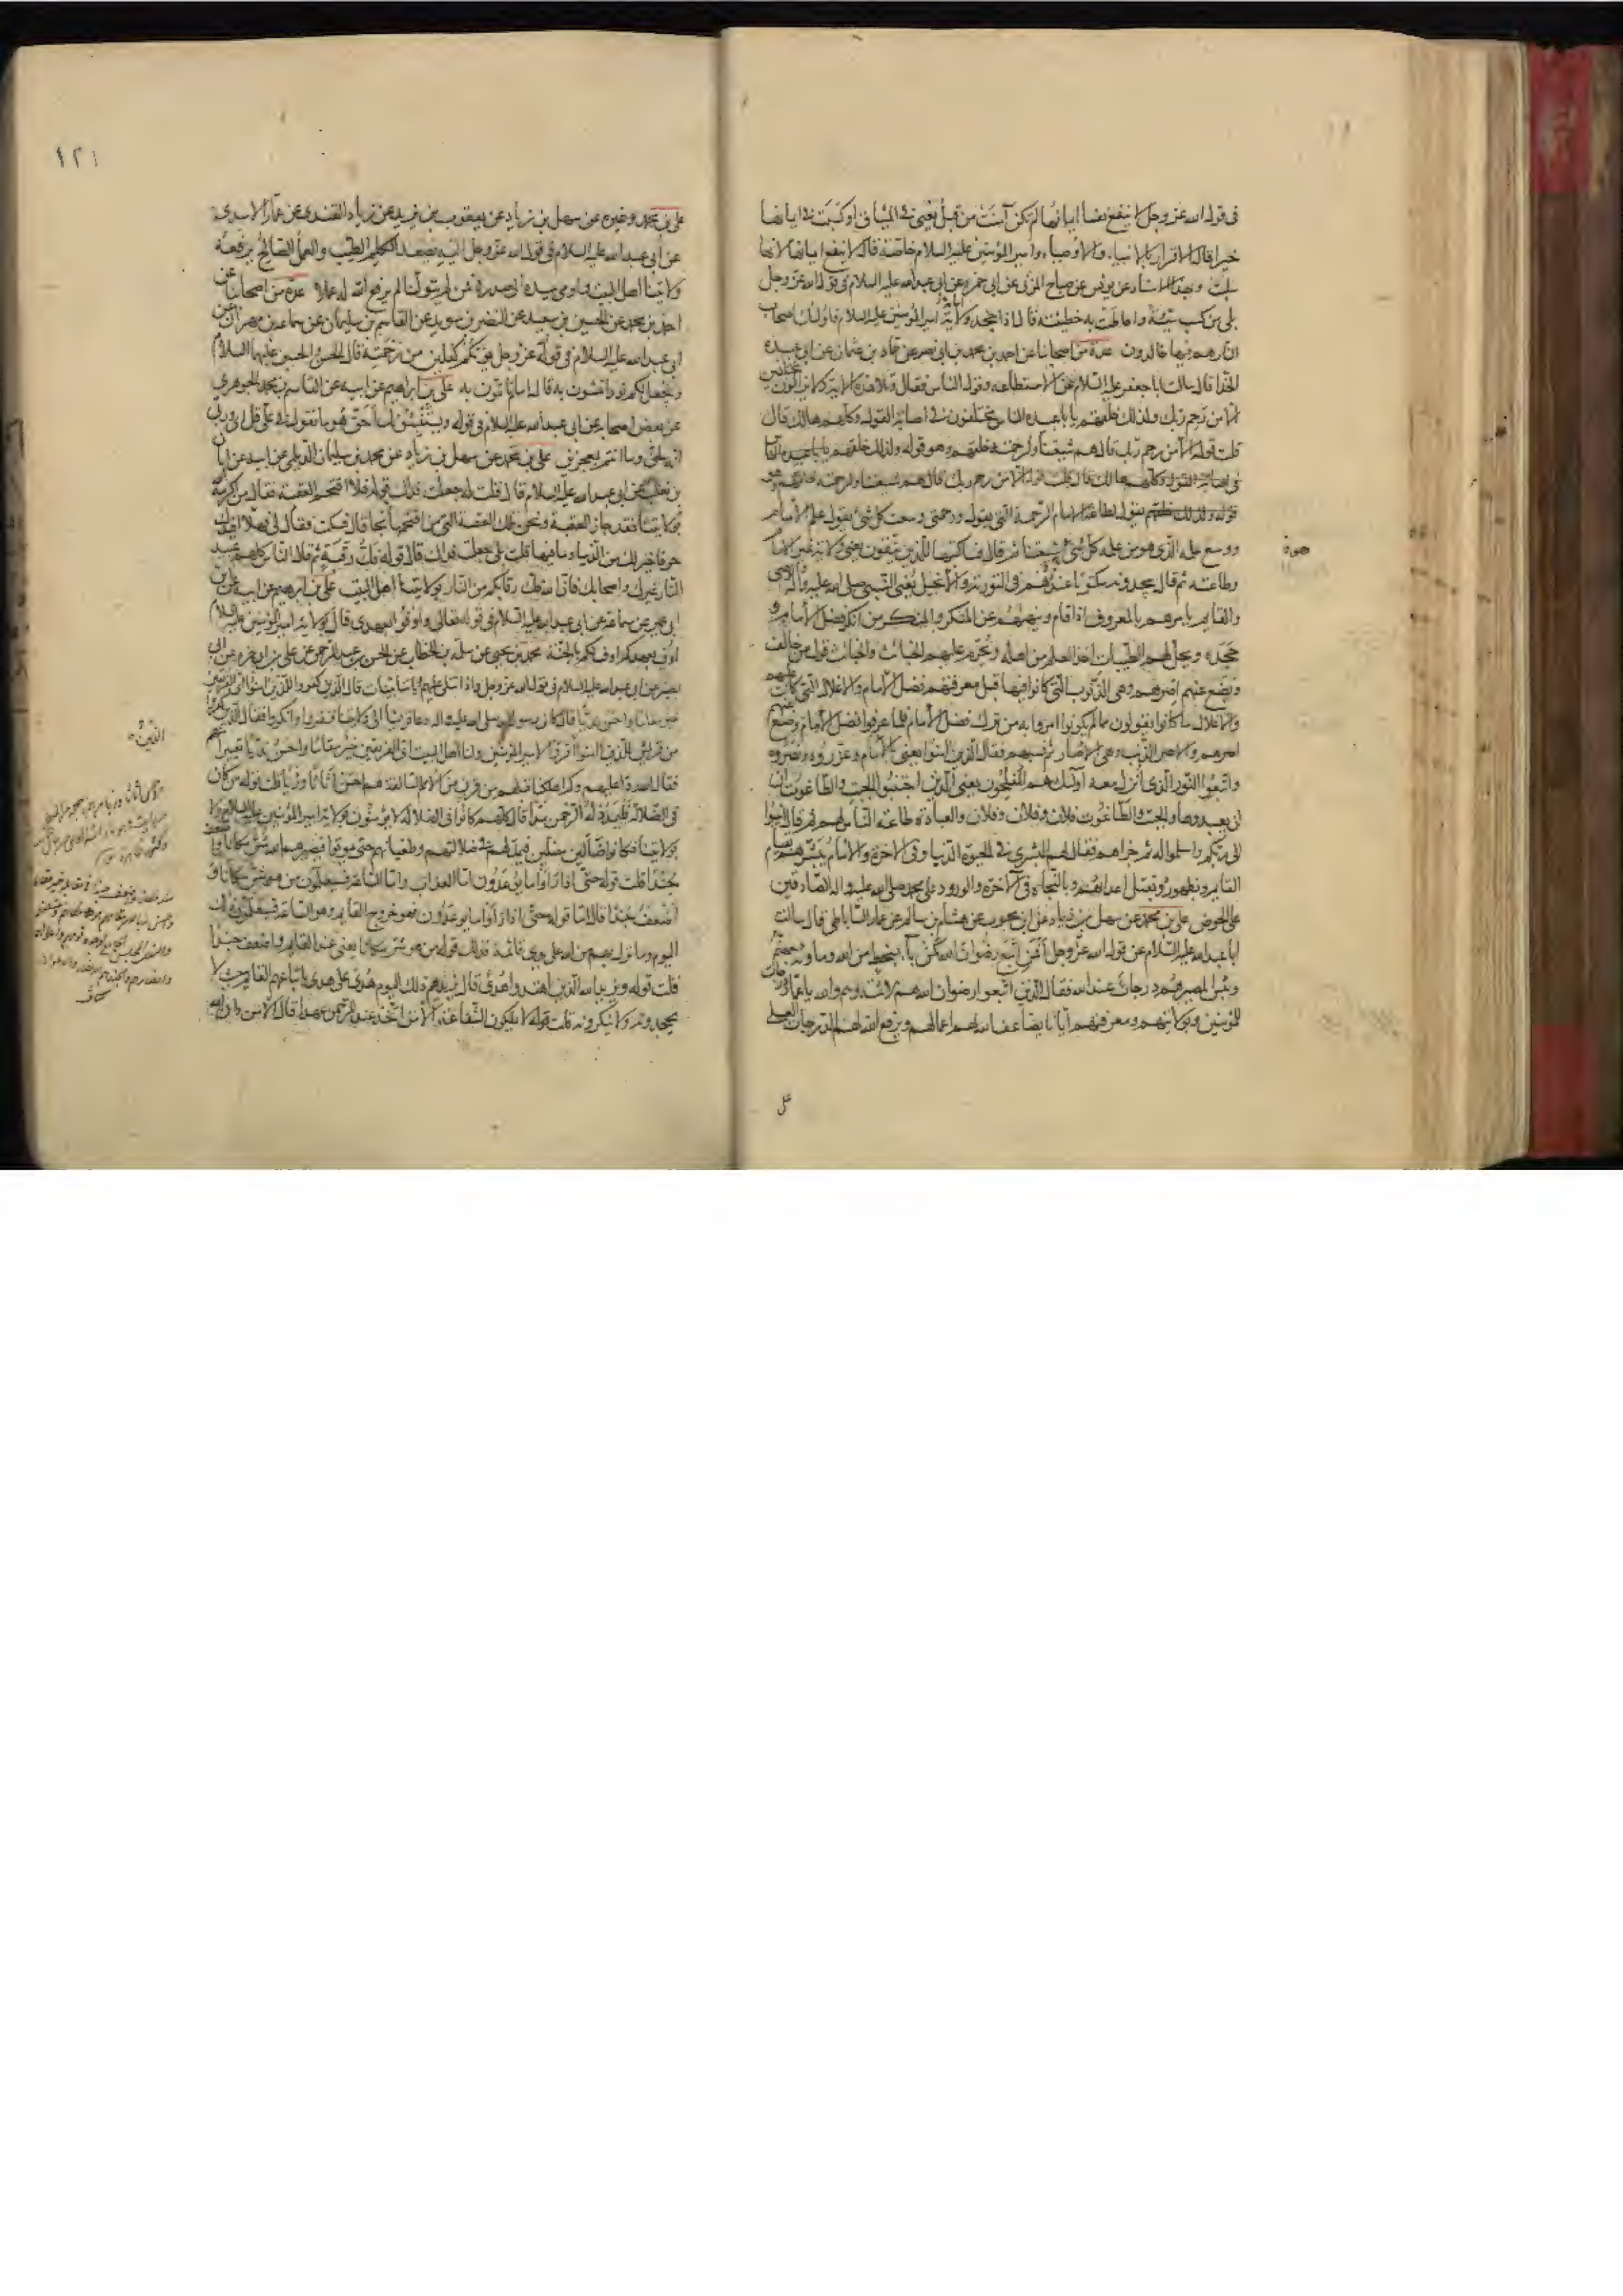 فى قول الله عز وجل لا ينفع نفسا ايمانها لم تكن آمنت من قبل يعنى فى الميثاق او كسبت فى ايمانها
خيرا قال الاقرار بالانبياء والاوصياء وامير المؤمنين عليه السلام خاصة قال لا ينفع ايمانها لانها
سلبت وبهذا الاسناد عن يونس عن صباح المزنى عن ابى حمزة عن ابى عبدالله عليه السلام فى قول الله عز وجل
بلى من كسب سيئة واحاطت به خطيئته قال اذا جحد ولاية امير المؤمنين عليه السلام فاولئك اصحاب
النار هم فيها خالدون عدة من اصحابنا عن احمد بن محمد بن ابى نصر عن حماد بن عثمان عن ابى عبيدة
الحذا قال سالت ابا جعفر عليه السلام عن الاستطاعة وقول الناس فقال وتلا هذه الاية ولا يزالون مختلفين
الا من رحم ربك ولذلك خلقهم يا با عبيدة الناس مختلفون فى اصابة القول وكلهم هالك قال
قلت قوله الا من رحم ربك قال هم شيعتنا ولرحمته خلقهم وهو قوله ولذلك خلقهم يا با عبيدة الناس
فى اصابة القول وكلهم هالك قال قلت قوله الا من رحم ربك قال هم شيعتنا ولرحمته خلقهم وهو
قوله ولذلك خلقهم يقول لطاعة الامام الرحمة التى يقول ورحمتى وسعت كل شئ يقول علم الامام
ووسع علمه الذى هو من علمه كل شئ هم شيعتنا ثم قال فساكتبها للذين يتقون يعنى ولاية غير الامام
وطاعته ثم قال يجدونه مكتوبا عندهم فى التورية والانجيل يعنى النبى صلى الله عليه وآله والوصى
والقايم يامرهم بالمعروف اذا قام وينهيهم عن المنكر والمنكر من انكر فضل الامام و
جحده ويحل لهم الطيبات اخذ العلم من اهله ويحرم عليهم الخبائث والخبائث قول من خالف
ويضع عنهم اصرهم وهى الذنوب التى كانوا فيها قبل معرفتهم فضل الامام والاغلال التى كانت عليهم
والاغلال ما كانوا يقولون مما لم يكونوا امروا به من ترك فضل الامام فلما عرفوا فضل الامام وضع عنهم
اصرهم والاصر الذنب وهى الاصار ثم نسبهم فقال الذين آمنوا يعنى بالامام وعزروه ونصروه
واتبعوا النور الذى انزل معه اولئك هم المفلحون يعنى الذين اجتنبوا الجبت والطاغوت ان
ان يعبدوها والجبت والطاغوت فلان وفلان وفلان والعبادة طاعة الناس لهم ثم قال انيبوا
الى ربكم واسلموا له ثم جزاهم فقال لهم البشرى فى الحيوة الدنيا وفى الاخرة والامام يبشرهم بقيام
القايم وبظهوره وبقتل اعدائهم وبالنجاة فى الآخرة والورود على محمد صلى الله عليه واله الصادقين
على الحوض على بن محمد عن سهل بن زياد عن ابن محبوب عن هشام بن سالم عن عمار الساباطى قال سالت
ابا عبدالله عليه السلام عن قول الله عز وجل افمن اتبع رضوان الله كمن باء بسخط من الله وماويه جهنم
وبئس المصير هم درجات عند الله فقال الذين اتبعوا رضوان الله هم الائمة وهم والله يا عمار درجات
للمؤمنين وبولايتهم ومعرفتهم ايانا يضاعف الله لهم اعمالهم ويرفع الله لهم الدرجات العلى
على
١٢١
على بن محمد وغيره عن سهل بن زياد عن يعقوب بن يزيد عن زياد القندى عن عمار الاسدى
عن ابى عبدالله عليه السلام فى قول الله عز وجل اليه يصعد الكلم الطيب والعمل الصالح يرفعه
ولايتنا اهل البيت واومى بيده الى صدره فمن لم يتولنا لم يرفع الله له عملا عدة من اصحابنا عن
احمد بن محمد عن الحسين بن سعيد عن النضر بن سويد عن القاسم بن سليمان عن سماعة بن مهران عن
ابى عبدالله عليه السلام فى قوله عز وجل يؤتكم كفلين من رحمته قال الحسن والحسين عليهما السلام
ويجعل لكم نورا تمشون به قال اماما تاتمون به على بن ابراهيم عن ابيه عن القاسم بن محمد الجوهرى
عن بعض اصحابه عن ابى عبدالله عليه السلام فى قوله ويستنبئونك احق هو ما تقول فى على قل اى وربى
انه لحق وما انتم بمعجزين على بن محمد عن سهل بن زياد عن محمد بن سليمان الديلمى عن ابيه عن ابان
بن تغلب عن ابى عبدالله عليه السلام قال قلت له جعلت فداك قوله فلا اقتحم العقبة فقال من اكرمه الله
بولايتنا فقد جاز العقبة ونحن تلك العقبة التى من اقتحمها نجا قال فسكت فقال لى فهلا افيدك
حرفا خير لك من الدنيا وما فيها قلت بلى جعلت فداك قال قوله فك رقبة ثم قال الناس كلهم عبيد
النار غيرك واصحابك فان الله فك رقابكم من النار بولايتنا اهل البيت على بن ابراهيم عن ابيه عن ابن
ابى عمير عن سماعة عن ابى عبدالله عليه السلام فى قوله تعالى واوفوا بعهدى قال بولاية امير المؤمنين عليه السلام
اوف بعهدكم اوف لكم بالجنة محمد بن يحيى عن سلمة بن الخطاب عن الحسن بن عبد الرحمن عن على بن ابى حمزة عن ابى
بصير عن ابى عبدالله عليه السلام فى قول الله عز وجل واذا تتلى عليهم آياتنا بينات قال الذين كفروا للذين امنوا اى الفريقين
خير مقاما واحسن نديا قال كان رسول الله صلى الله عليه واله دعا قريشا الى ولايتنا فنفروا وانكروا فقال الذين كفروا
من قريش للذين امنوا اقروا لامير المؤمنين ولنا اهل البيت اى الفريقين خير مقاما واحسن نديا تعييرا منهم
فقال الله ردا عليهم وكم اهلكنا قبلهم من قرن من الامم السالفة هم احسن اثاثا ورئيا قلت قوله من كان
فى الضلالة فليمدد له الرحمن مدا قال كلهم كانوا فى الضلالة لا يؤمنون بولاية امير المؤمنين عليه السلام ولا
بولايتنا فكانوا ضالين مضلين فيمد لهم فى ضلالتهم وطغيانهم حتى يموتوا فيصيرهم الله شر مكانا واضعف
جندا قلت قوله حتى اذا راوا ما يوعدون اما العذاب واما الساعة فسيعلمون من هو شر مكانا و
اضعف جندا قال اما قوله حتى اذا راوا ما يوعدون فهو خروج القايم وهو الساعة فسيعلمون ذلك
اليوم وما نزل بهم من الله على يدى قائمه فذلك قوله من هو شر مكانا يعنى عند القايم واضعف جندا
قلت قوله ويزيد الله الذين اهتدوا هدى قال يزيدهم ذلك اليوم هدى على هدى باتباعهم القايم حيث لا
يجحدونه ولا ينكرونه قلت قوله لا يملكون الشفاعة الا من اتخذ عند الرحمن عهدا قال الا من دان الله